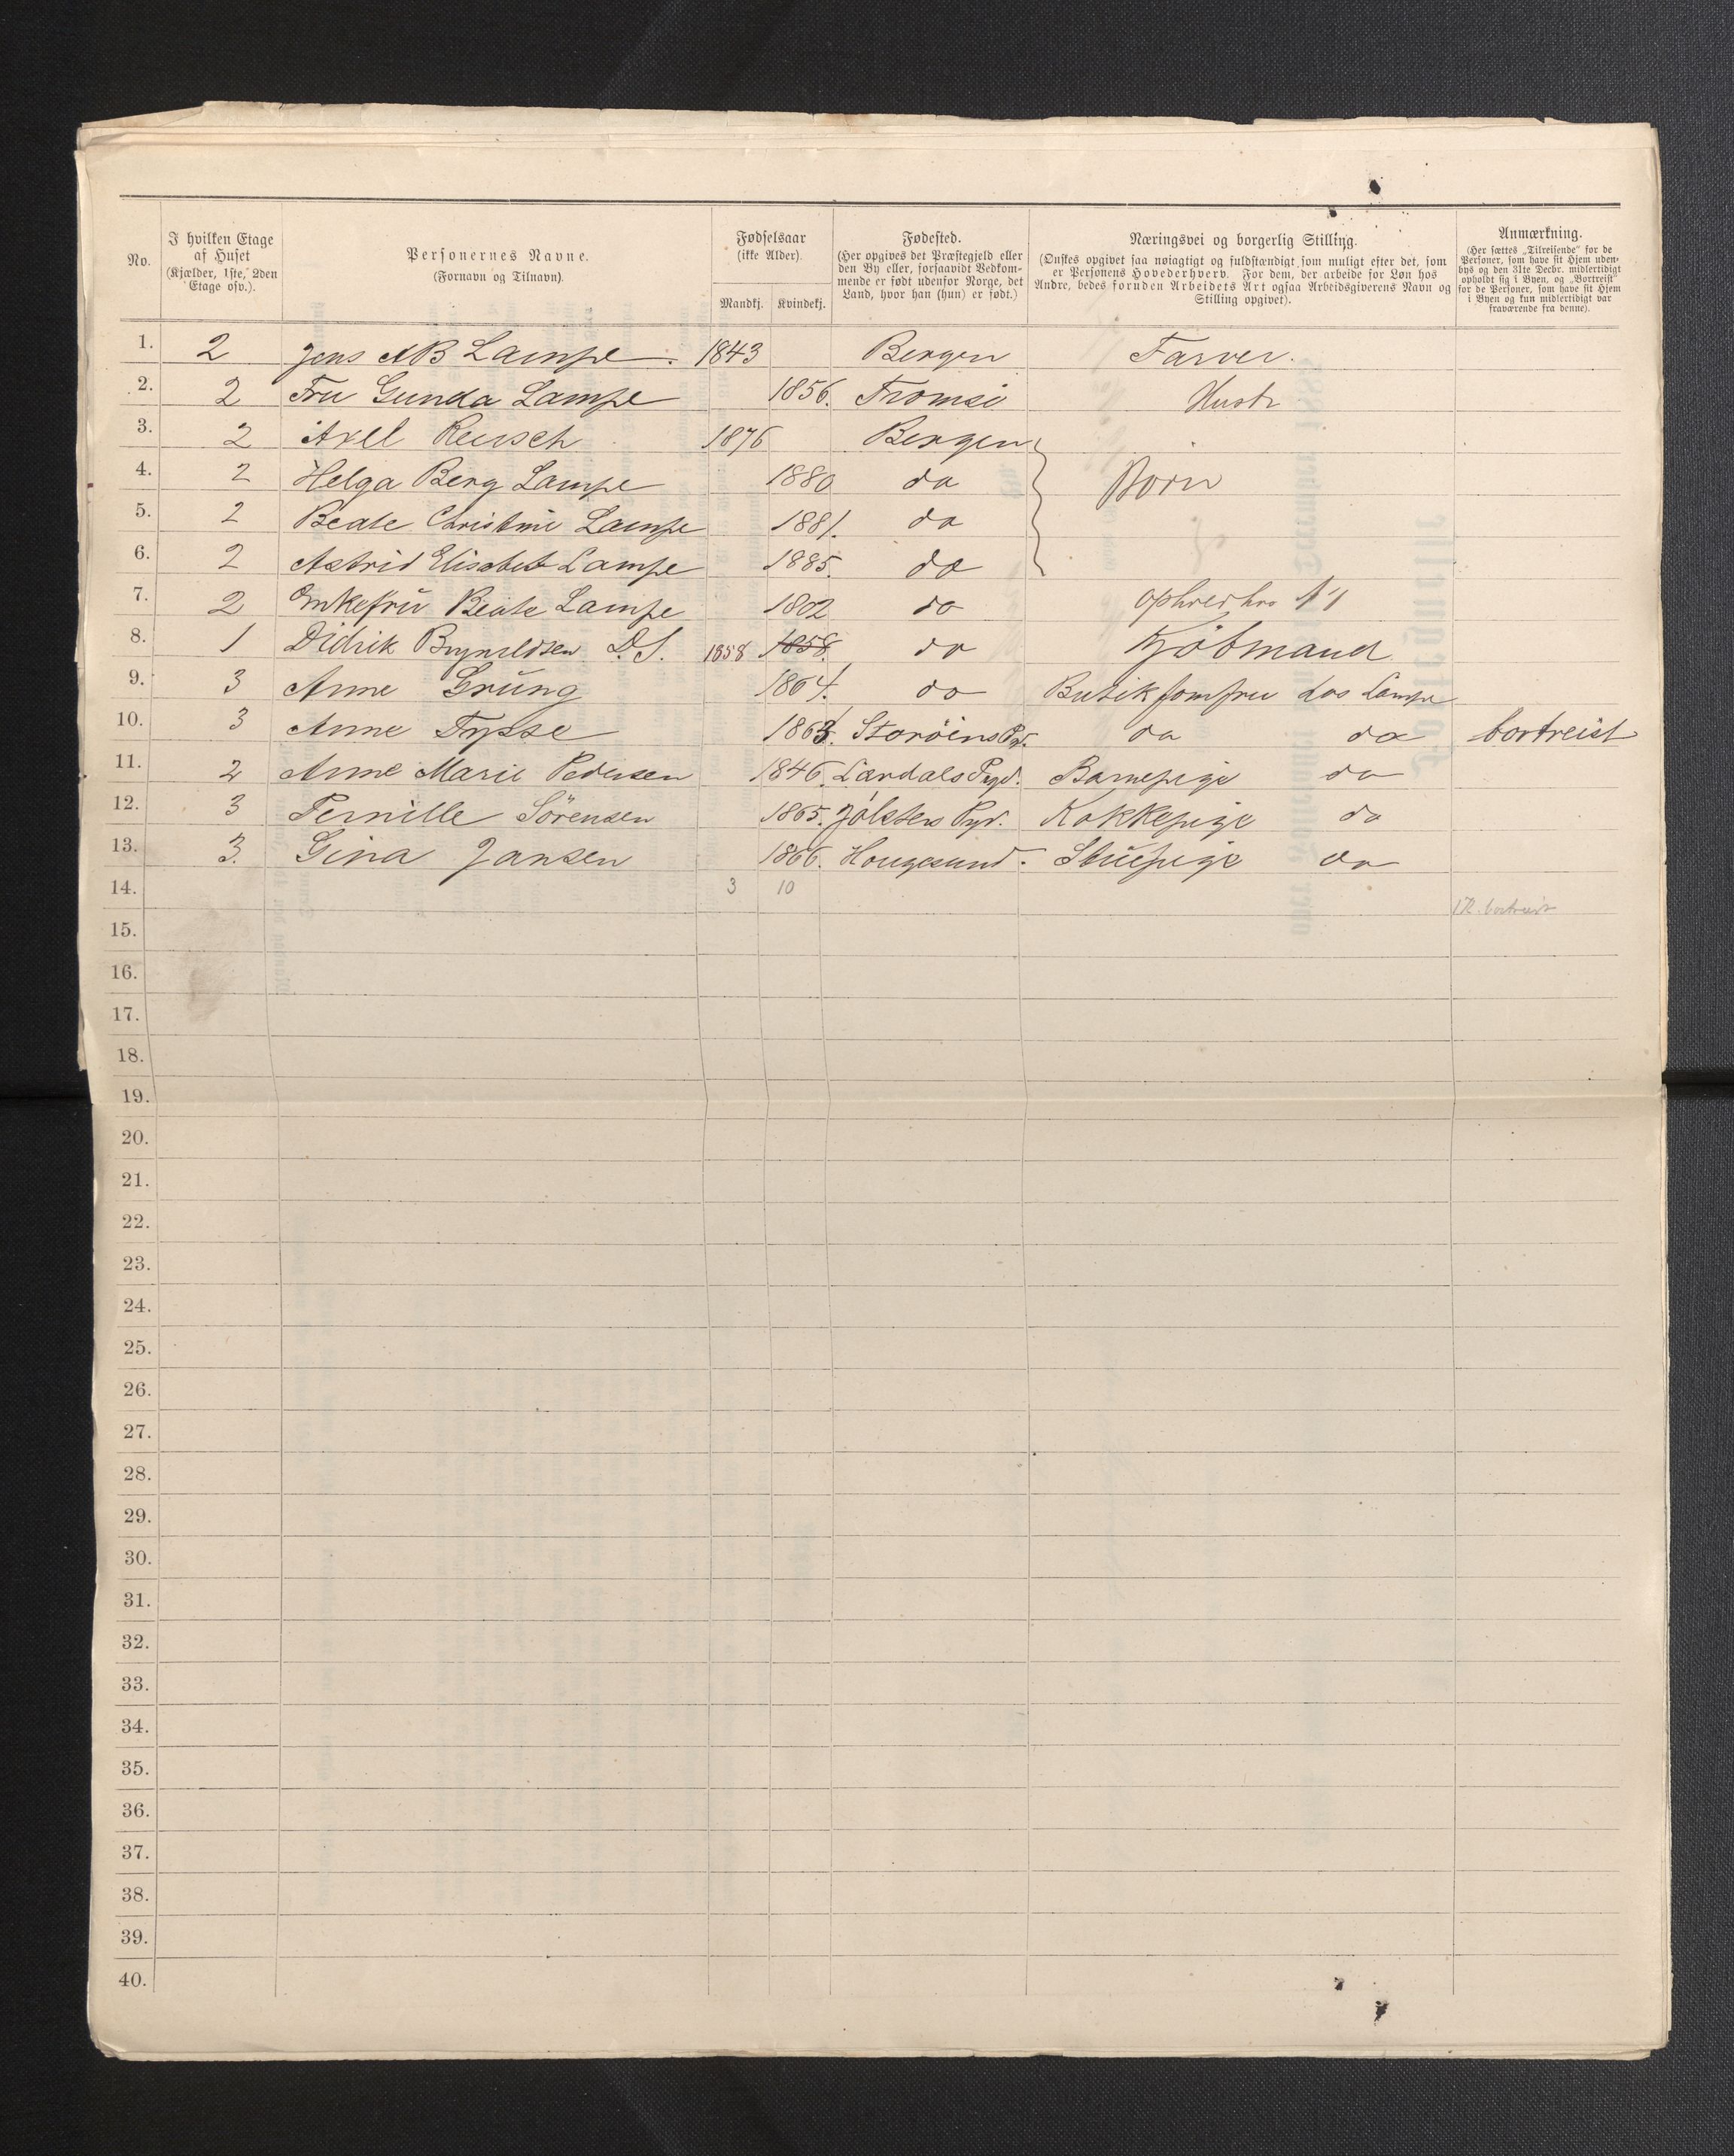 No.
I hvilken Etage af Huset (Kjælder, 1ste, 2den Etage osv.).
Personernes Navne. (Fornavn og Tilnavn).
Fødselsaar (ikke Alder).
Mandkj. Kvindekj.
Fødested. (Her opgives det Præstegjeld eller den By eller, forsaavidt Vedkommende er født udenfor Norge, det Land, hvor han (hun) er født.)
Næringsvei og borgerlig Stilling. (Ønskes opgivet saa nøiagtigt og fuldstændigt som muligt efter det, som er Personens Hovederhverv. For dem, der arbeide for Løn hos Andre, bedes foruden Arbeidets Art ogsaa Arbeidsgiverens Navn og Stilling opgivet).
Anmærkning. (Her sættes „Tilreisende" for de Personer, som have sit Hjem udenbys og den 31te Decbr. midlertidigt opholdt sig i Byen, og „Bortreist" for de Personer, som have sit Hjem i Byen og kun midlertidigt var fraværende fra denne).
1. 2 Jens AB Lampe. 1843 Bergen Farver.
2. 2 Fru Gunda Lampe 1856. Tromsö Hustr
3. 2 Axel Reusch 1876 Bergen
4. 2 Helga Berg Lampe 1880 do Börn
5. 2 Beate Christine Lampe 1881. do
6. 2 Astrid Elisabet Lampe 1885. do
7. 2 Enkefrü Beate Lampe 1802 do
8. 1 Didrik Brynildsen D.S. 1858 1858. do Kjöbmand
9. 3 Anne Grüng 1864. do Butikjomfru hos Lampe
10. 3 Anne Tysse 1863. Storöens Pgd. do do bortreist
11. 2 Anne Marie Pedersen 1846. Lærdals Prgd. Barnepige do
12. 3 Pernille Sörensen 1865. Jölsters Prgd. Kokkepige do
13. 3. Gina Jansen 1866. Hougesund. Stüepige do
14. 3 10
1 K. bortreist
15.
16.
17.
18.
19.
20.
21.
22.
23.
24.
25.
26.
27.
28.
29.
30.
31.
32.
33.
34.
35.
36.
37.
38.
39.
40.